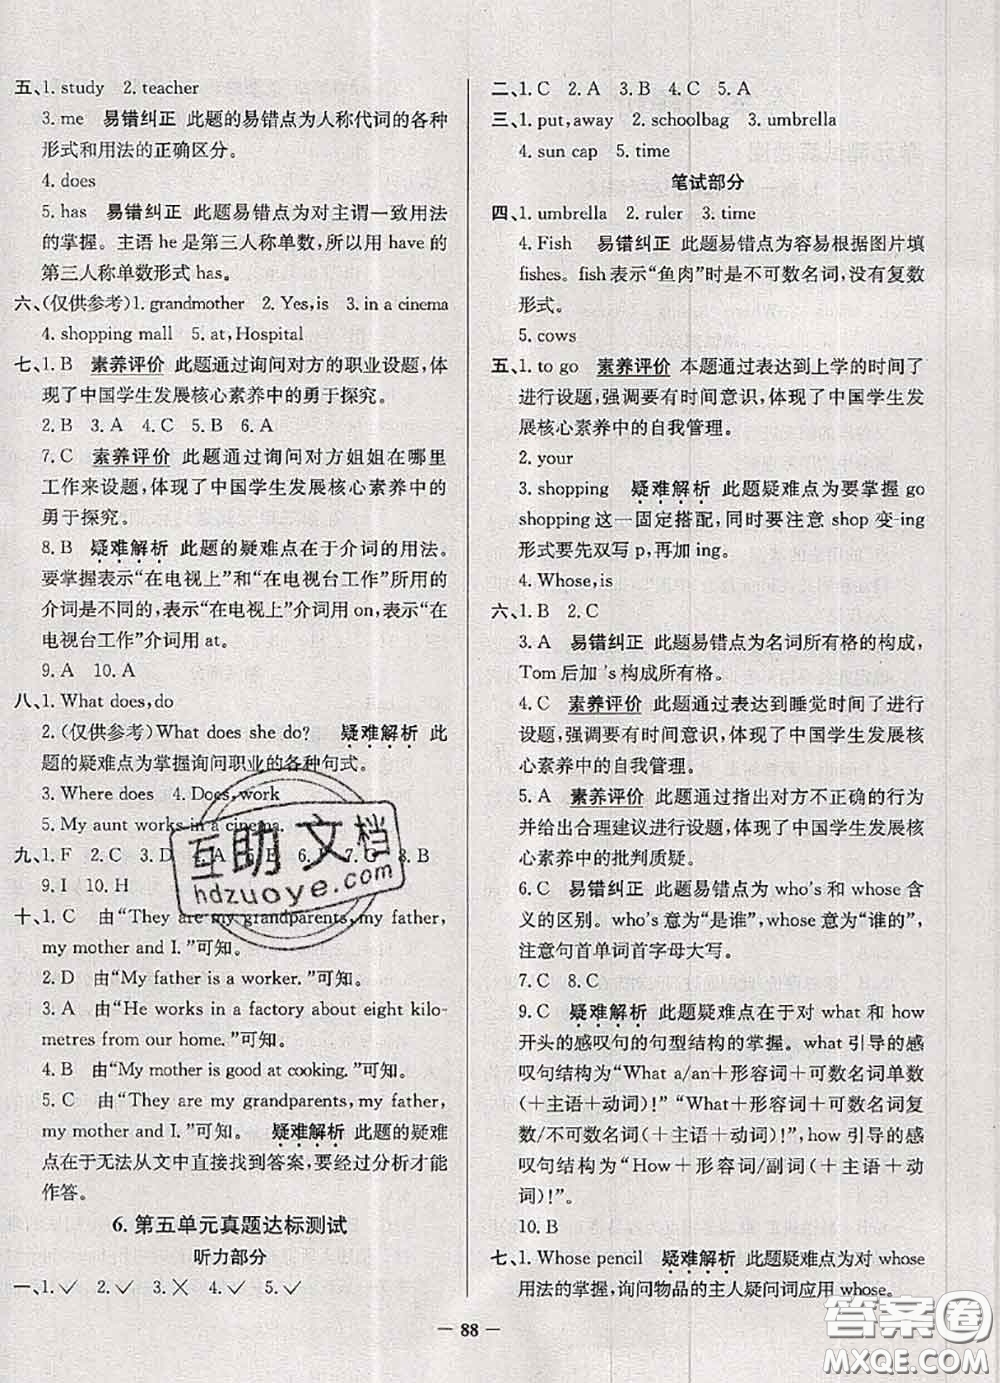 五、1. study　2. teacher
3. me　易错纠正　此题的易错点为人称代词的各种
形式和用法的正确区分。
4. does
5. has　易错纠正　此题易错点为对主谓一致用法
的掌握。主语 he 是第三人称单数，所以用 have 的
第三人称单数形式 has。
六、(仅供参考)1. grandmother　2. Yes, is　3. in a cinema
4. shopping mall　5. at, Hospital
七、1. B　素养评价　此题通过询问对方的职业设题，体
现了中国学生发展核心素养中的勇于探究。
2. B　3. A　4. C　5. B　6. A
7. C　素养评价　此题通过询问对方姐姐在哪里
工作来设题，体现了中国学生发展核心素养中的
勇于探究。
8. B　疑难解析　此题的疑难点在于介词的用法。
要掌握表示“在电视上”和“在电视台工作”所用的
介词是不同的，表示“在电视上”介词用 on，表示“在
电视台工作”介词用 at。
9. A　10. A
八、1. What does, do
2. (仅供参考)What does she do?　疑难解析　此
题的疑难点为掌握询问职业的各种句式。
3. Where does　4. Does, work
5. My aunt works in a cinema.
九、1. F　2. C　3. D　4. A　5. E　6. J　7. G　8. B
9. I　10. H
十、1. C　由“They are my grandparents, my father,
my mother and I.”可知。
2. D　由“My father is a worker.”可知。
3. A　由“He works in a factory about eight kilo-
metres from our home.”可知。
4. B　由“My mother is good at cooking.”可知。
5. C　由“They are my grandparents, my father,
my mother and I.”可知。　疑难解析　此题的疑难
点在于无法从文中直接找到答案，要经过分析才能
作答。
6. 第五单元真题达标测试
听力部分
一、1. ✓　2. ✓　3. ✗　4. ✓　5. ✓
二、1. C　2. A　3. B　4. C　5. A
三、1. put, away　2. schoolbag　3. umbrella
4. sun cap　5. time
笔试部分
四、1. umbrella　2. ruler　3. time
4. Fish　易错纠正　此题易错点为容易根据图片填
fishes。fish 表示“鱼肉”时是不可数名词，没有复数
形式。
5. cows
五、1. to go　素养评价　本题通过表达到上学的时间了
进行设题，强调要有时间意识，体现了中国学生发
展核心素养中的自我管理。
2. your
3. shopping　疑难解析　此题疑难点为要掌握 go
shopping 这一固定搭配，同时要注意 shop 变-ing
形式要先双写 p，再加 ing。
4. Whose, is
六、1. B　2. C
3. A　易错纠正　此题易错点为名词所有格的构成，
Tom 后加 's 构成所有格。
4. C　素养评价　此题通过表达到睡觉时间了进行设
题，强调要有时间意识，体现了中国学生发展核
心素养中的自我管理。
5. A　素养评价　此题通过指出对方不正确的行为
并给出合理建议进行设题，体现了中国学生发展核
心素养中的批判质疑。
6. C　易错纠正　此题易错点为 who's 和 whose 含
义的区别。who's 意为“是谁”，whose 意为“谁的”，
注意句首单词首字母大写。
7. C　8. C
9. C　疑难解析　此题疑难点在于对 what 和 how
开头的感叹句的句型结构的掌握。what 引导的感
叹句结构为“What a/an＋形容词＋可数名词单数
(＋主语＋动词)!”“What＋形容词＋可数名词复
数/不可数名词(＋主语＋动词)!”，how 引导的感
叹句结构为“How＋形容词/副词(＋主语＋动
词)!”。
10. B
七、1. Whose pencil　疑难解析　此题疑难点为对 whose
用法的掌握，询问物品的主人疑问词应用 whose。
— 88 —
互助文档
hdzuoye.com
答案圈
MXQE.COM